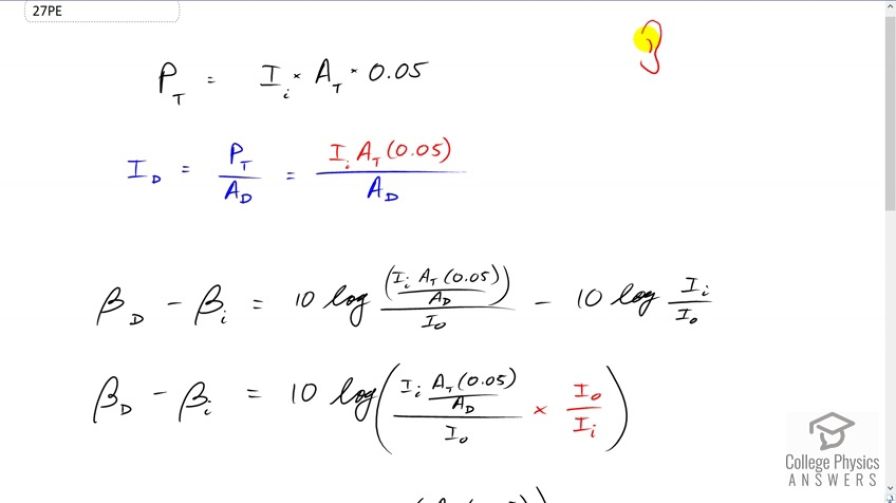 27PE
P_T = I_i × A_T × 0.05
I_D = P_T / A_D = I_i A_T (0.05) / A_D
β_D − β_i = 10 log ((I_i A_T (0.05)) / A_D) / I_0 − 10 log I_i / I_0
β_D − β_i = 10 log( (I_i A_T (0.05) / A_D) / I_0 × I_0 / I_i )
College Physics
ANSWERS